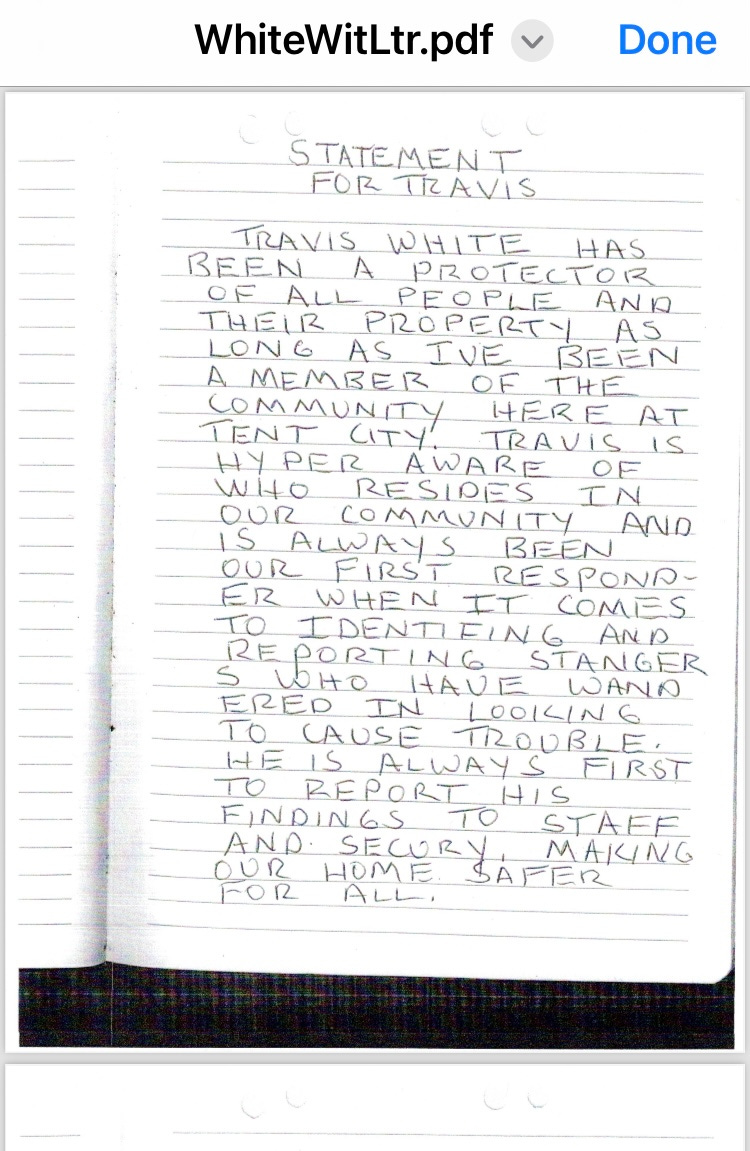 WhiteWitLtr.pdf Done
STATEMENT
FOR TRAVIS
TRAVIS WHITE HAS
BEEN A PROTECTOR
OF ALL PEOPLE AND
THEIR PROPERTY AS
LONG AS IVE BEEN
A MEMBER OF THE
COMMUNITY HERE AT
TENT CITY. TRAVIS IS
HYPER AWARE OF
WHO RESIDES IN
OUR COMMUNITY AND
IS ALWAYS BEEN
OUR FIRST RESPOND-
ER WHEN IT COMES
TO IDENTIFING AND
REPORTING STANGER
S WHO HAVE WAND
ERED IN LOOKING
TO CAUSE TROUBLE.
HE IS ALWAYS FIRST
TO REPORT HIS
FINDINGS TO STAFF
AND SECURY, MAKING
OUR HOME SAFER
FOR ALL.